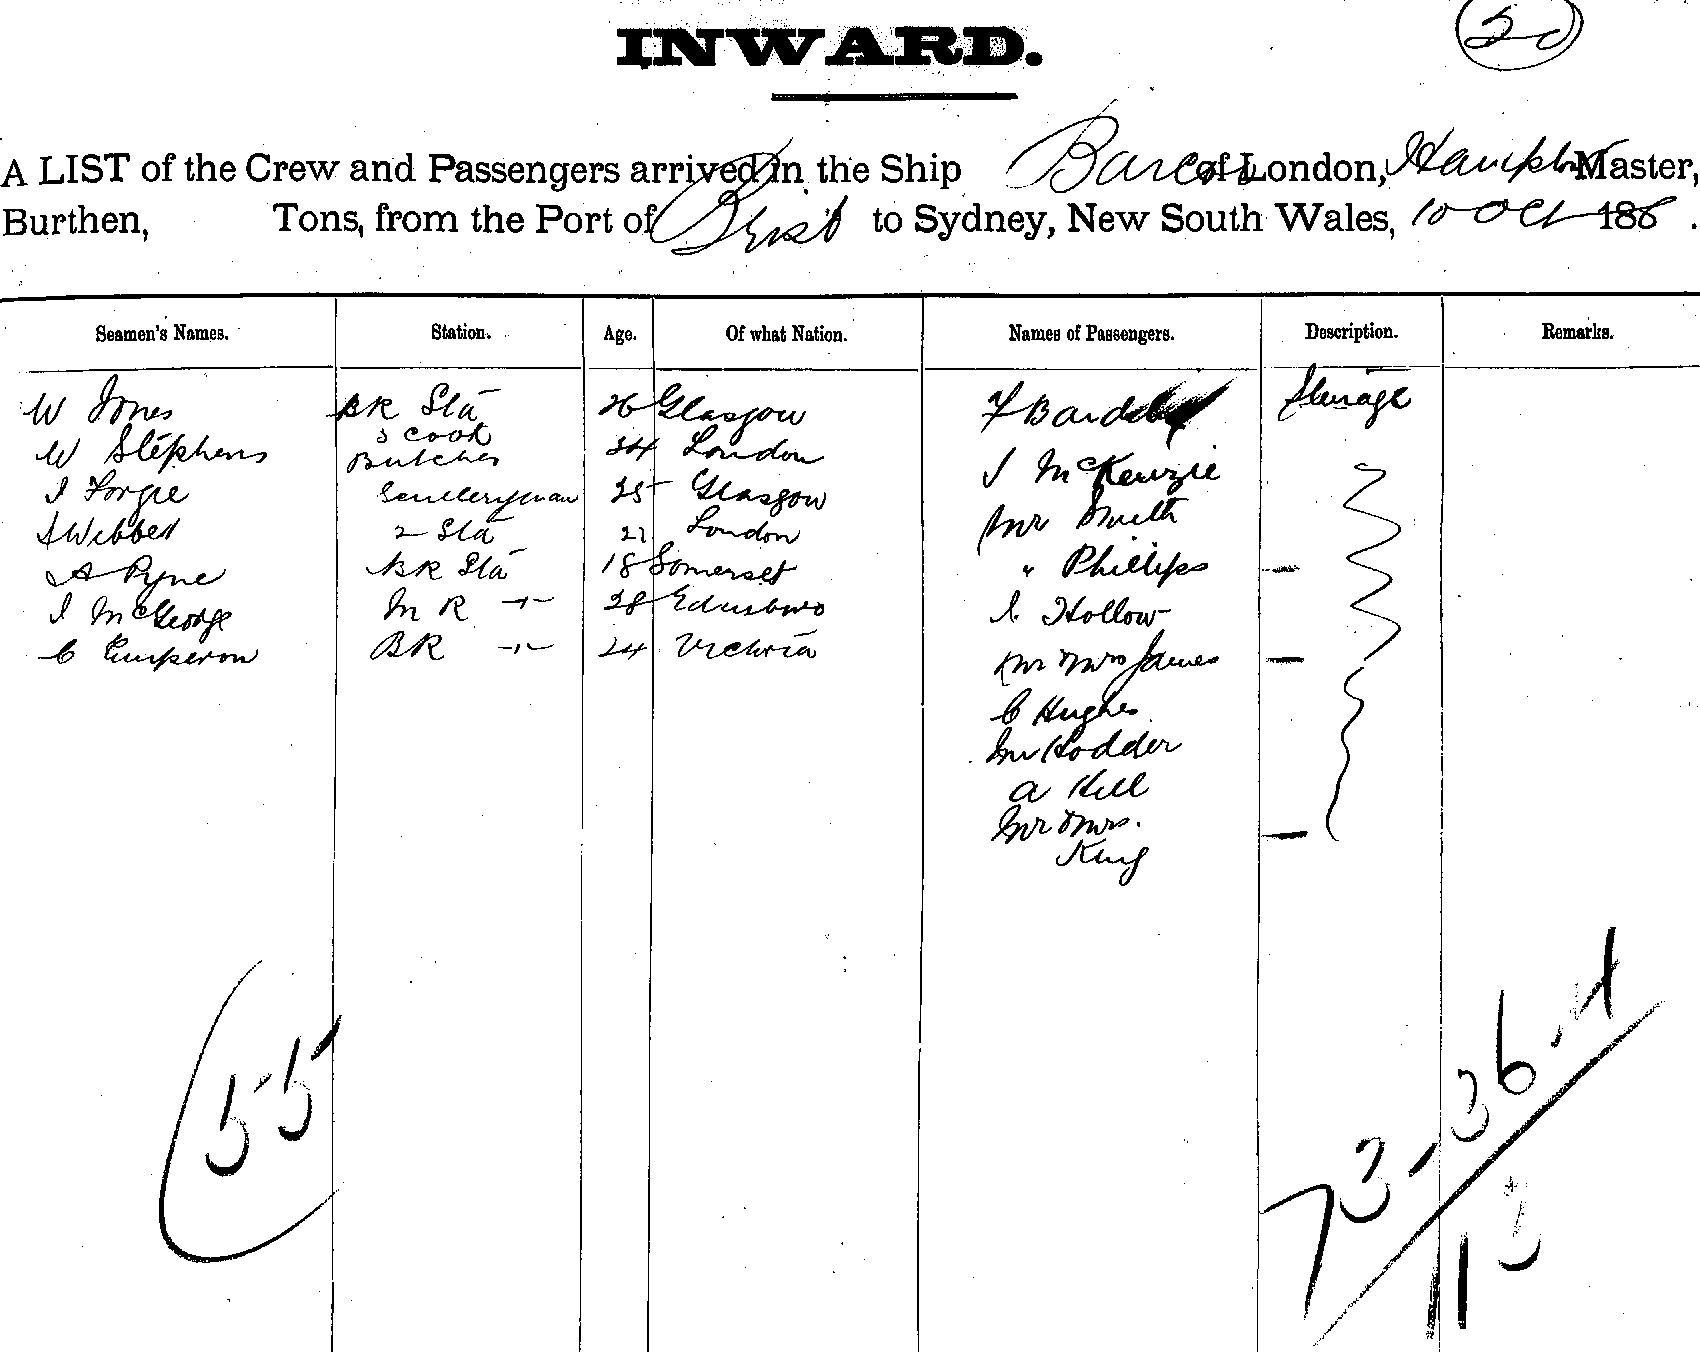 INWARD.
A LIST of the Crew and Passengers arrived in the Ship of London, Master,
Burthen, Tons, from the Port of to Sydney, New South Wales, 10 Oct 186 .
Seamen's Names. Station. Age. Of what Nation. Names of Passengers. Description. Remarks.
W Jones BR Sta 26 Glasgow F Steerage
3 Cook
W Stephens Butcher 34 London J McKenzie
J Forgie Sculleryman 25 Glasgow Mr Smith
A Webber 2 Sta 21 London
A Pyne BR Sta 18 Somerset " Phillips —
J McGeorge M R -"- 28 Edinburo I. Hollow
C BR -"- 24 Victoria Mr & Mrs James —
C Hughes
Mr Hodder
A Hill
Mr & Mrs. —
King
55
73-36-4
113